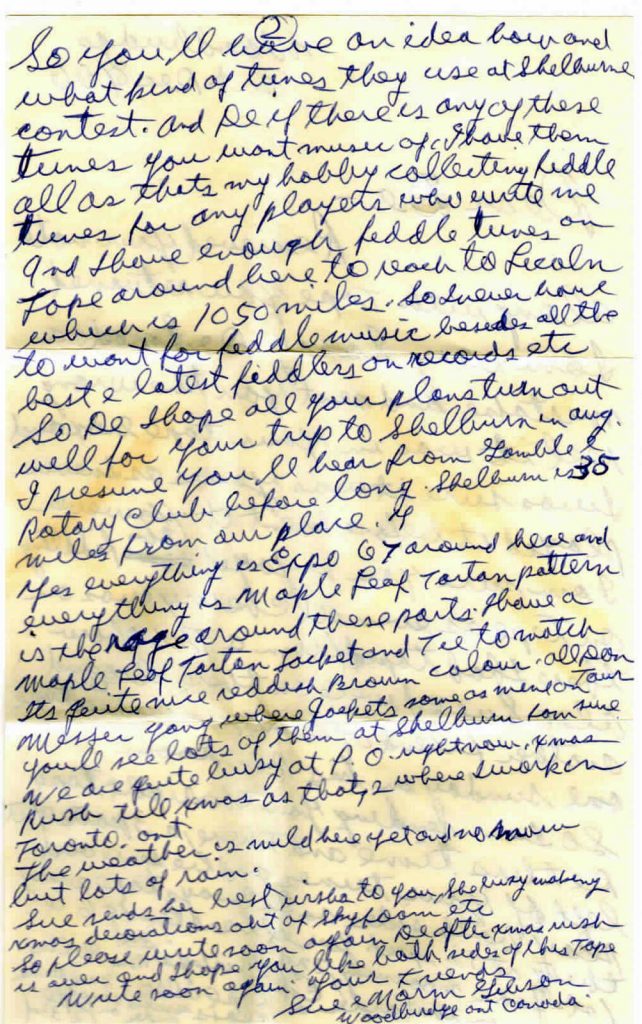 (2)
So You'll have an idea how and
what kind of tunes they use at Shelburne
contest. And De if there is any of these
tunes you want music of, I have them
all as thats my hobby collecting fiddle
tunes for any players who write me
And I have enough fiddle tunes on
Tape around here to reach to Lincoln
which is 1050 miles. So I never have
to want for fiddle music besides all the
best & latest fiddlers on records etc
So De I hope all your plans turn out
well for your trip to Shelburn in Aug.
I presume you'll hear from
Rotary Club before long. Shelburn is 35
miles from our place.
Yes everything is Expo 67 around here and
everything is Maple Leaf Tartan pattern
is the rage around these parts. I have a
Maple Leaf Tartan Jacket and Tie to match
Its quite nice reddish Brown colour. all Don
Messer gang where Jackets same as mine on Tour
you'll see lots of them at Shelburn I am sure
We are quite busy at P.O. right now, xmas
Rush till xmas as that's where I work in
Toronto. ont
The weather is mild here yet and no snow
but lots of rain.
Sue sends her best wishs to you, She busy making
xmas decorations out of Styfoom etc
So please write soon again De after xmas rush
is over and I hope you like both sides of this Tape
Write soon again. Your Friends
Sue & Norm Gibson
Woodbridge ont Canada.